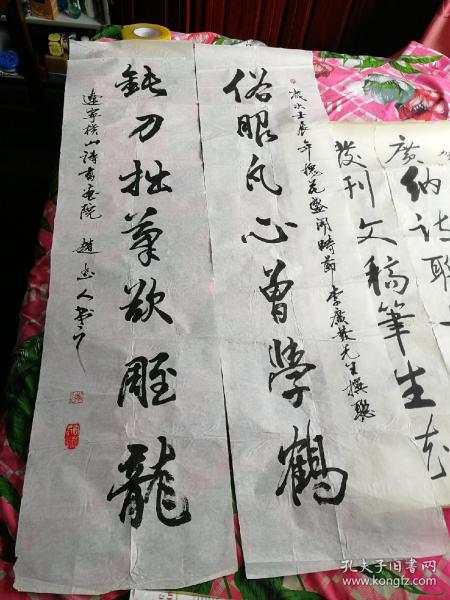 俗眼凡心曾學鶴
歲次壬辰年槐花盛開時節 李廣發先生撰聯
鈍刀拙筆欲雕龍
遼寧橫山詩書畫院 趙人書
廣納詩聯
發刊文稿筆生花
孔夫子旧书网
www.kongfz.com